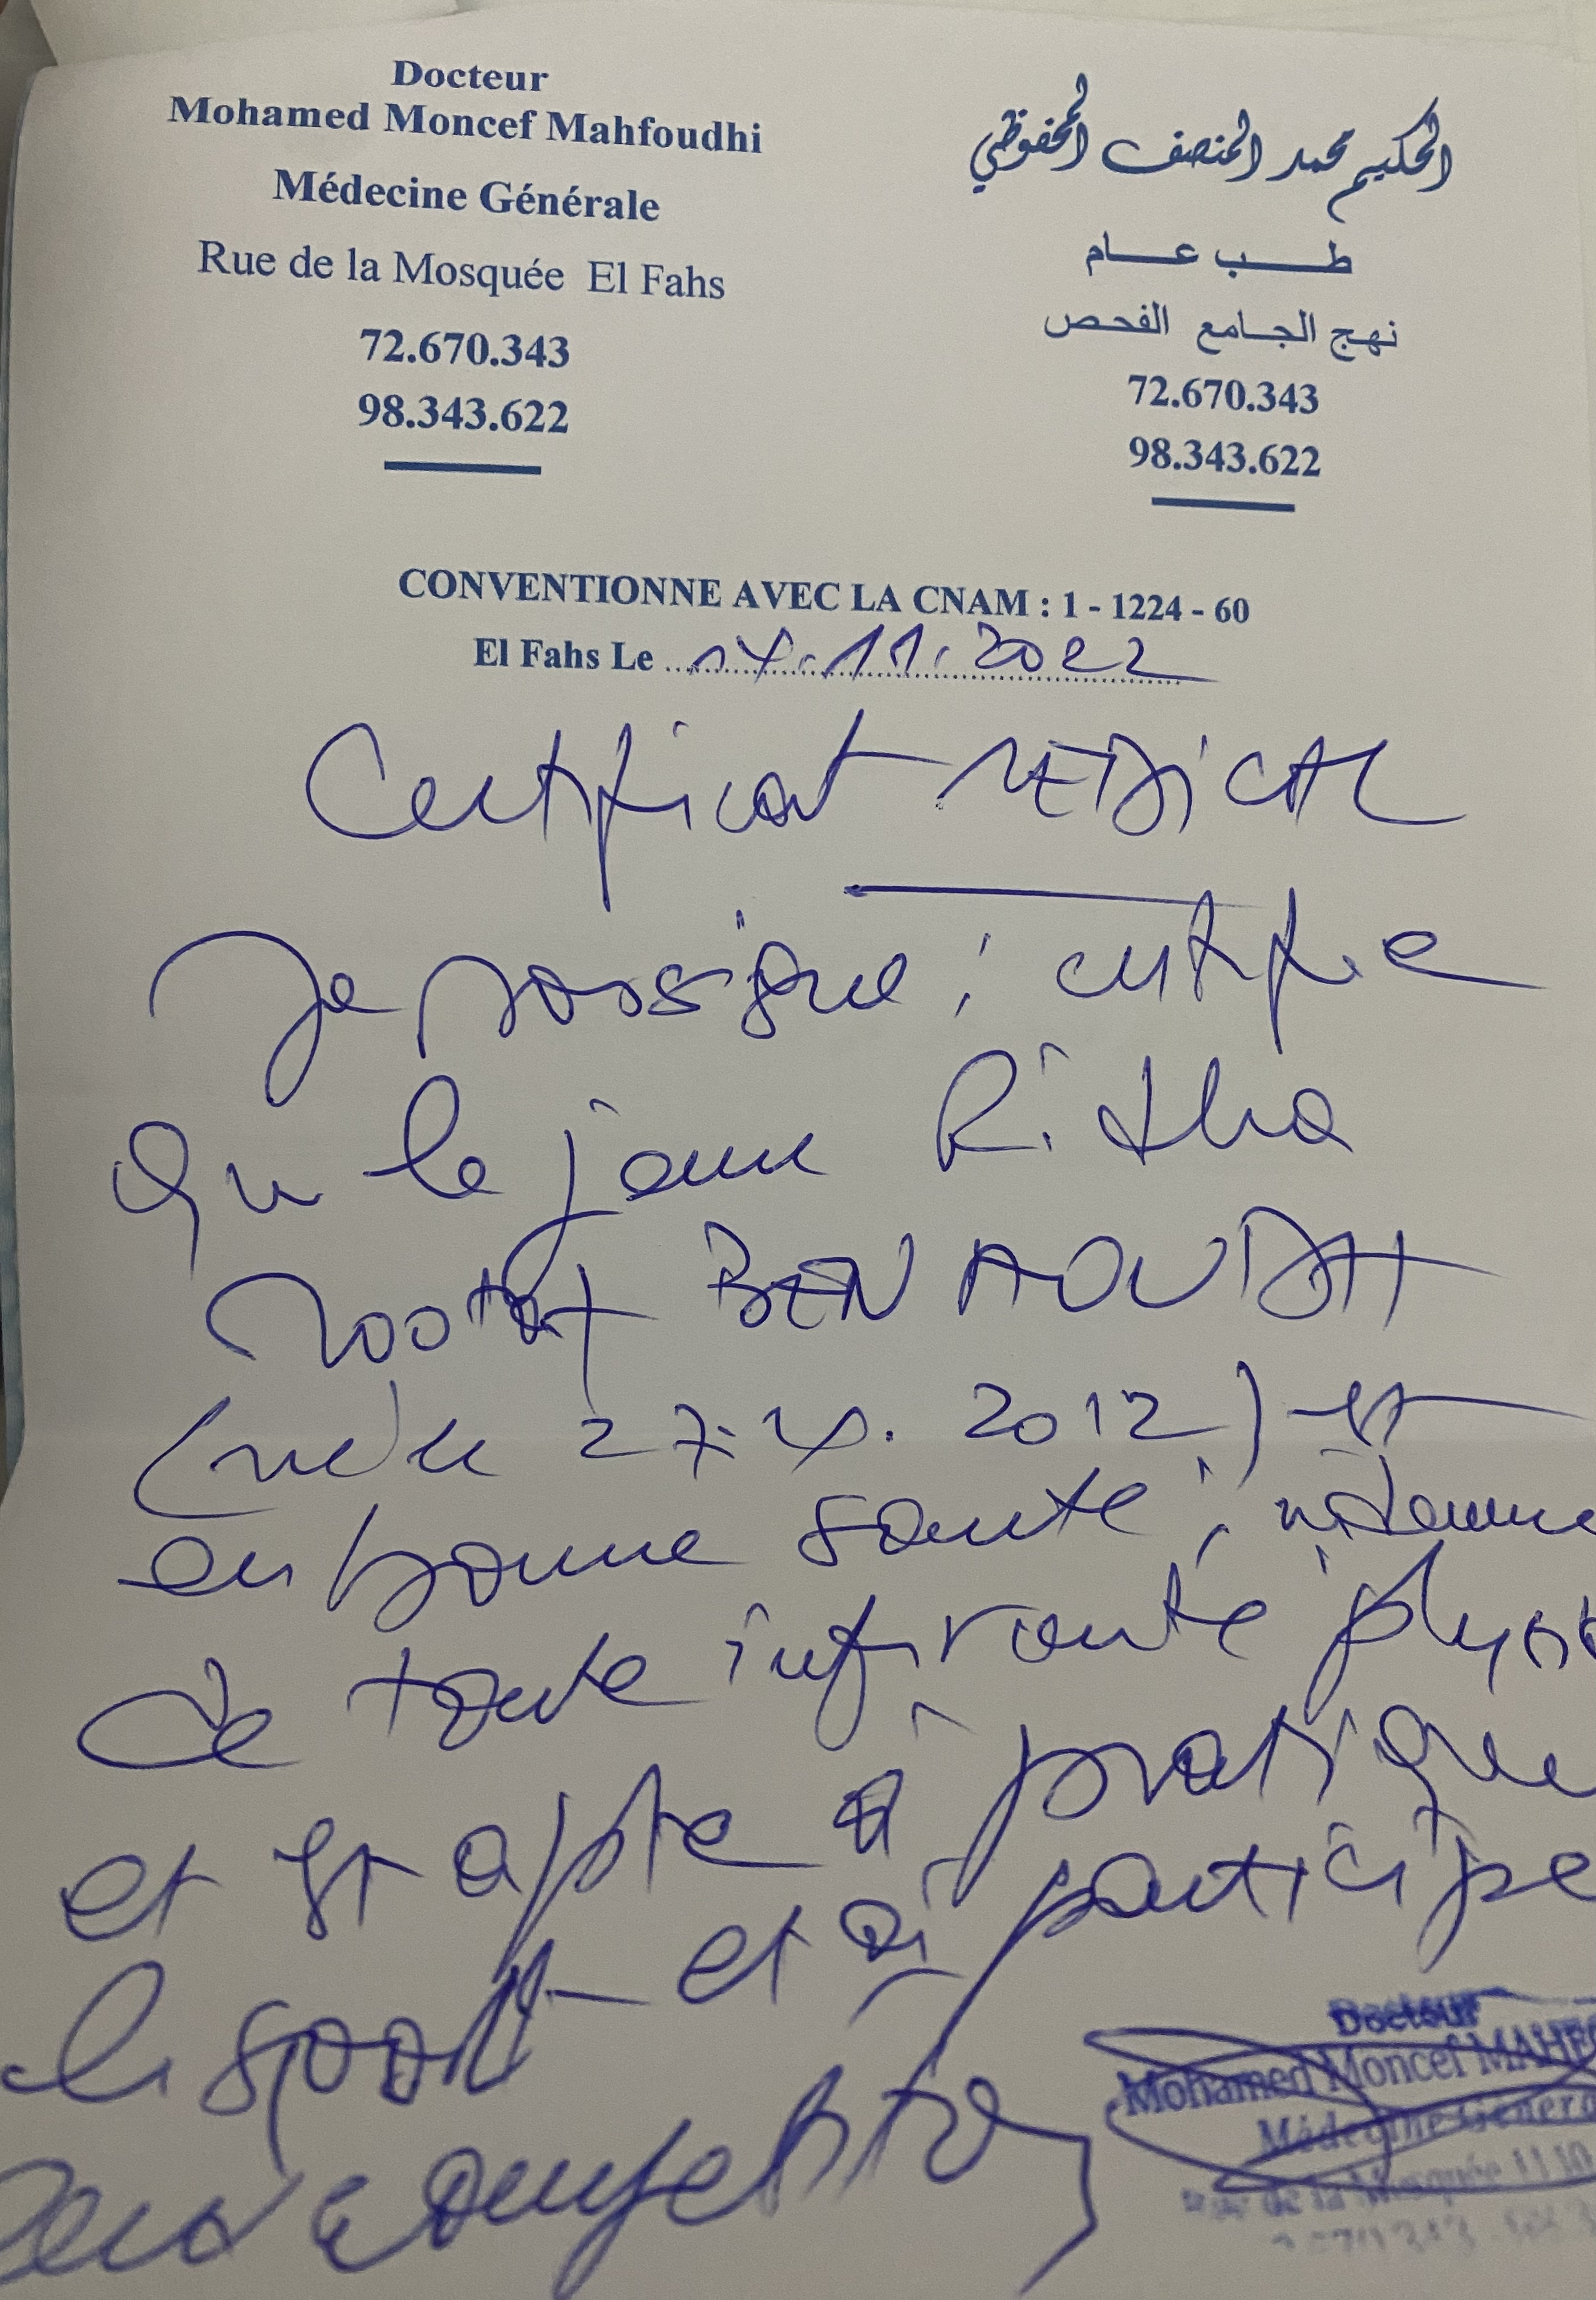 Docteur
Mohamed Moncef Mahfoudhi
Médecine Générale
Rue de la Mosquée El Fahs
72.670.343
98.343.622
الحكيم محمد المنصف المحفوظي
طب عام
نهج الجامع الفحص
72.670.343
98.343.622
CONVENTIONNE AVEC LA CNAM : 1 - 1224 - 60
El Fahs Le 17.11.2022
Certificat MEDICAL
Je soussigné, certifie
que le jeune Ridha
BEN AOUDAH
(né le 27. 2012) est
en bonne santé, indemne
de toute infirmité
et est apte à pratique
le sport et à participe
aux compétition
Docteur
Mohamed Moncef
Médecine
de la Mosquée